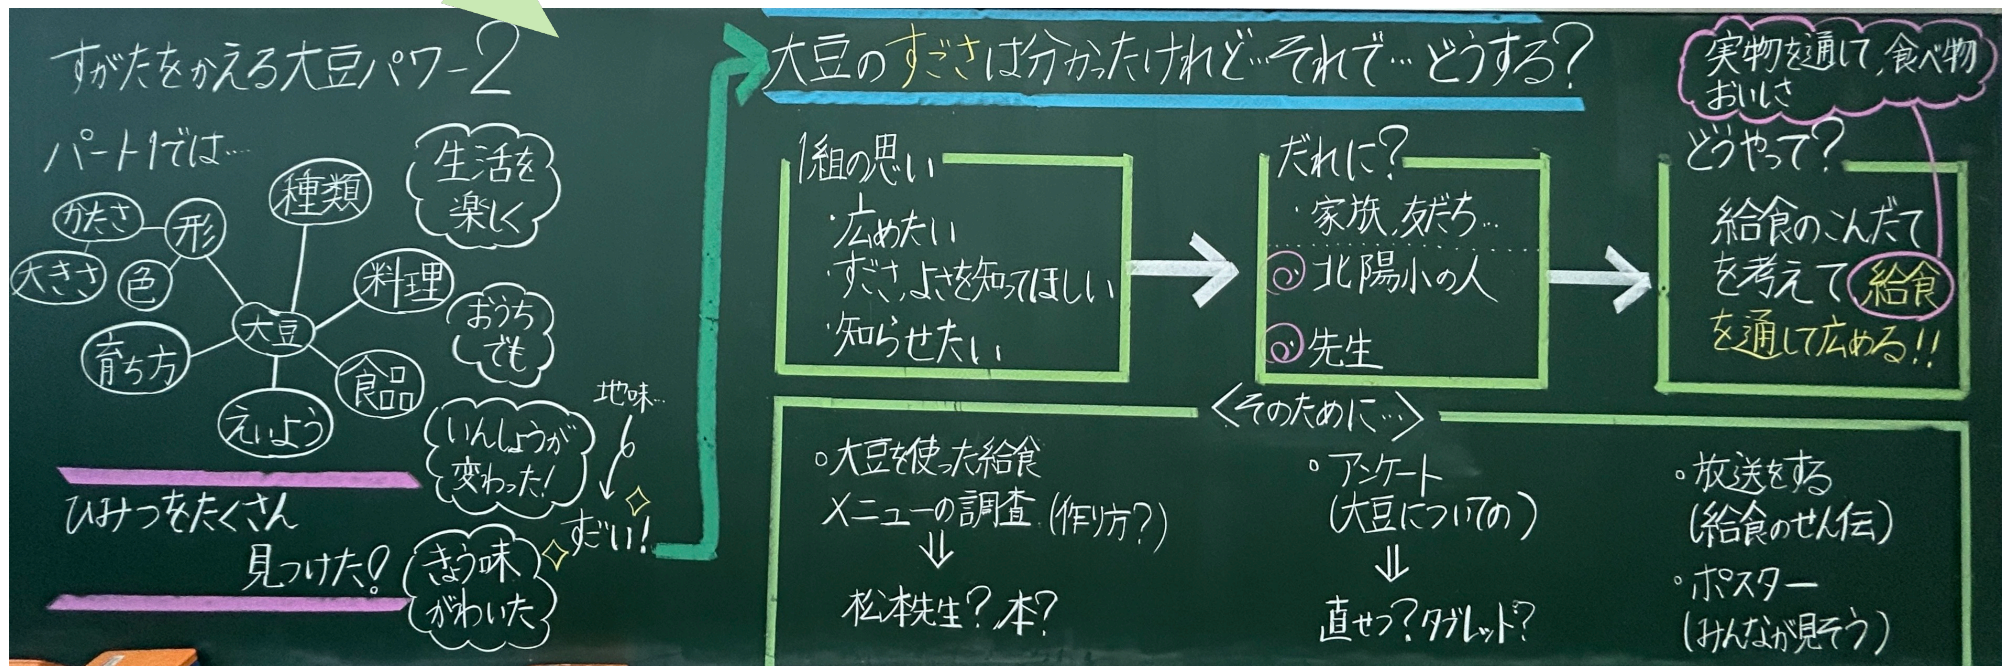 すがたをかえる大豆パワー2
パート1では…
種類
形
かたさ
大きさ
色
大豆
料理
育ち方
食品
えいよう
生活を
楽しく
おうち
でも
いんしょうが
変わった!
きょう味
がわいた
ひみつをたくさん
見つけた!
地味…
すごい!
大豆のすごさは分かったけれど…それで…どうする?
1組の思い
・広めたい
・すごさ、よさを知ってほしい
・知らせたい
だれに?
・家族、友だち…
北陽小の人
先生
実物を通して、食べ物
おいしさ
どうやって?
給食のこんだて
を考えて給食
を通して広める!!
〈そのために…〉
○大豆を使った給食
メニューの調査(作り方?)
⇓
松本先生?本?
○アンケート
(大豆についての)
⇓
直せつ?タブレット?
○放送をする
(給食のせん伝)
○ポスター
(みんなが見そう)